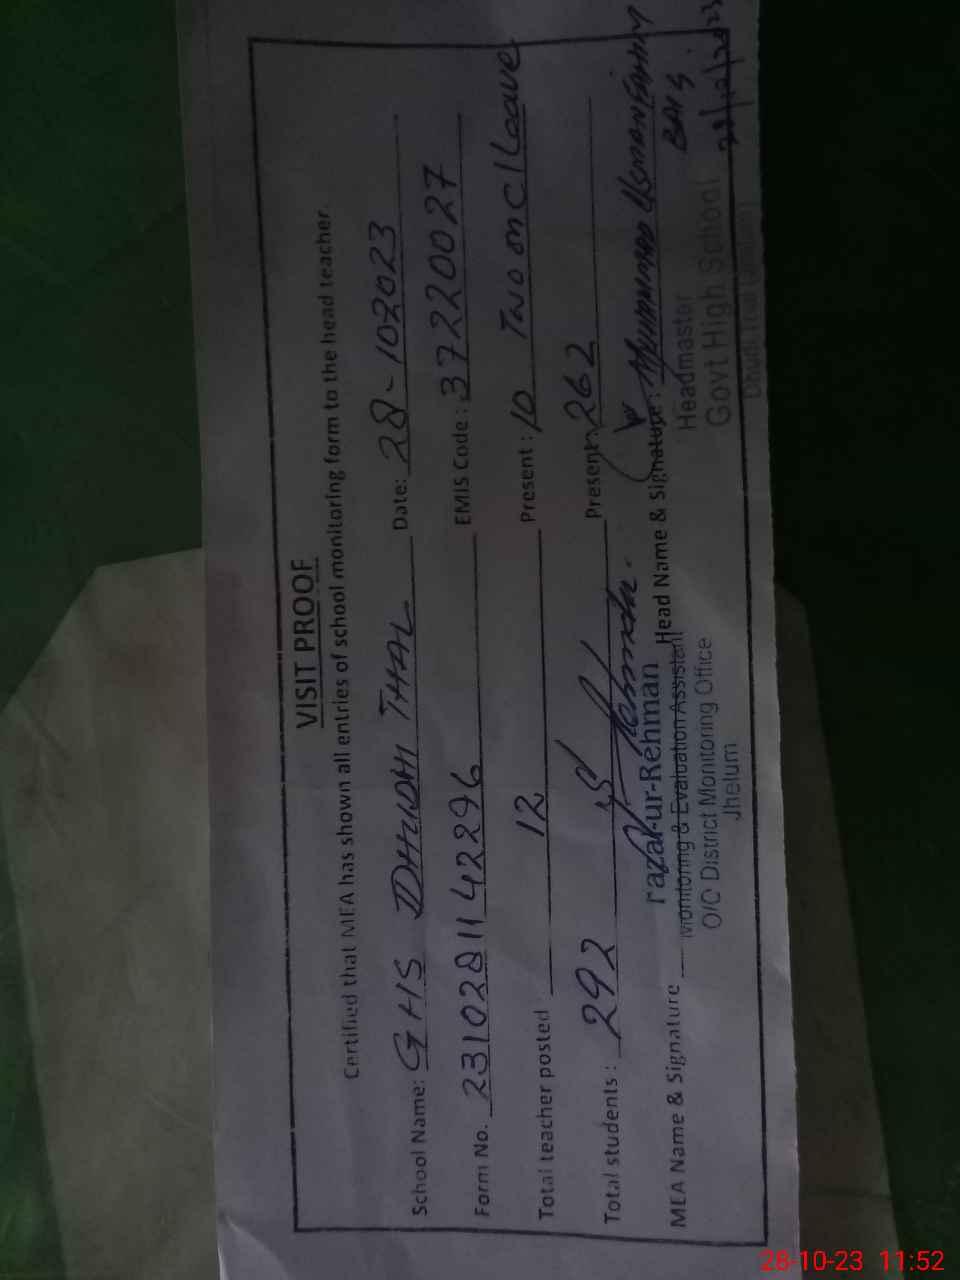 VISIT PROOF
Certified that MEA has shown all entries of school monitoring form to the head teacher.
School Name: GHS DHUDHI THAL Date: 28-102023
Form No. 2310281142296 EMIS Code: 37220027
Total teacher posted 12 Present: 10 Two on C/Leave
Total students: 292 Present: 262
MEA Name & Signature Head Name & Signature: Muhammad Usman
razal-ur-Rehman
Monitoring & Evaluation Assistant
O/O District Monitoring Office
Jhelum
Headmaster
Govt High School
Dhudi Thal
28/10/2023
28-10-23 11:52